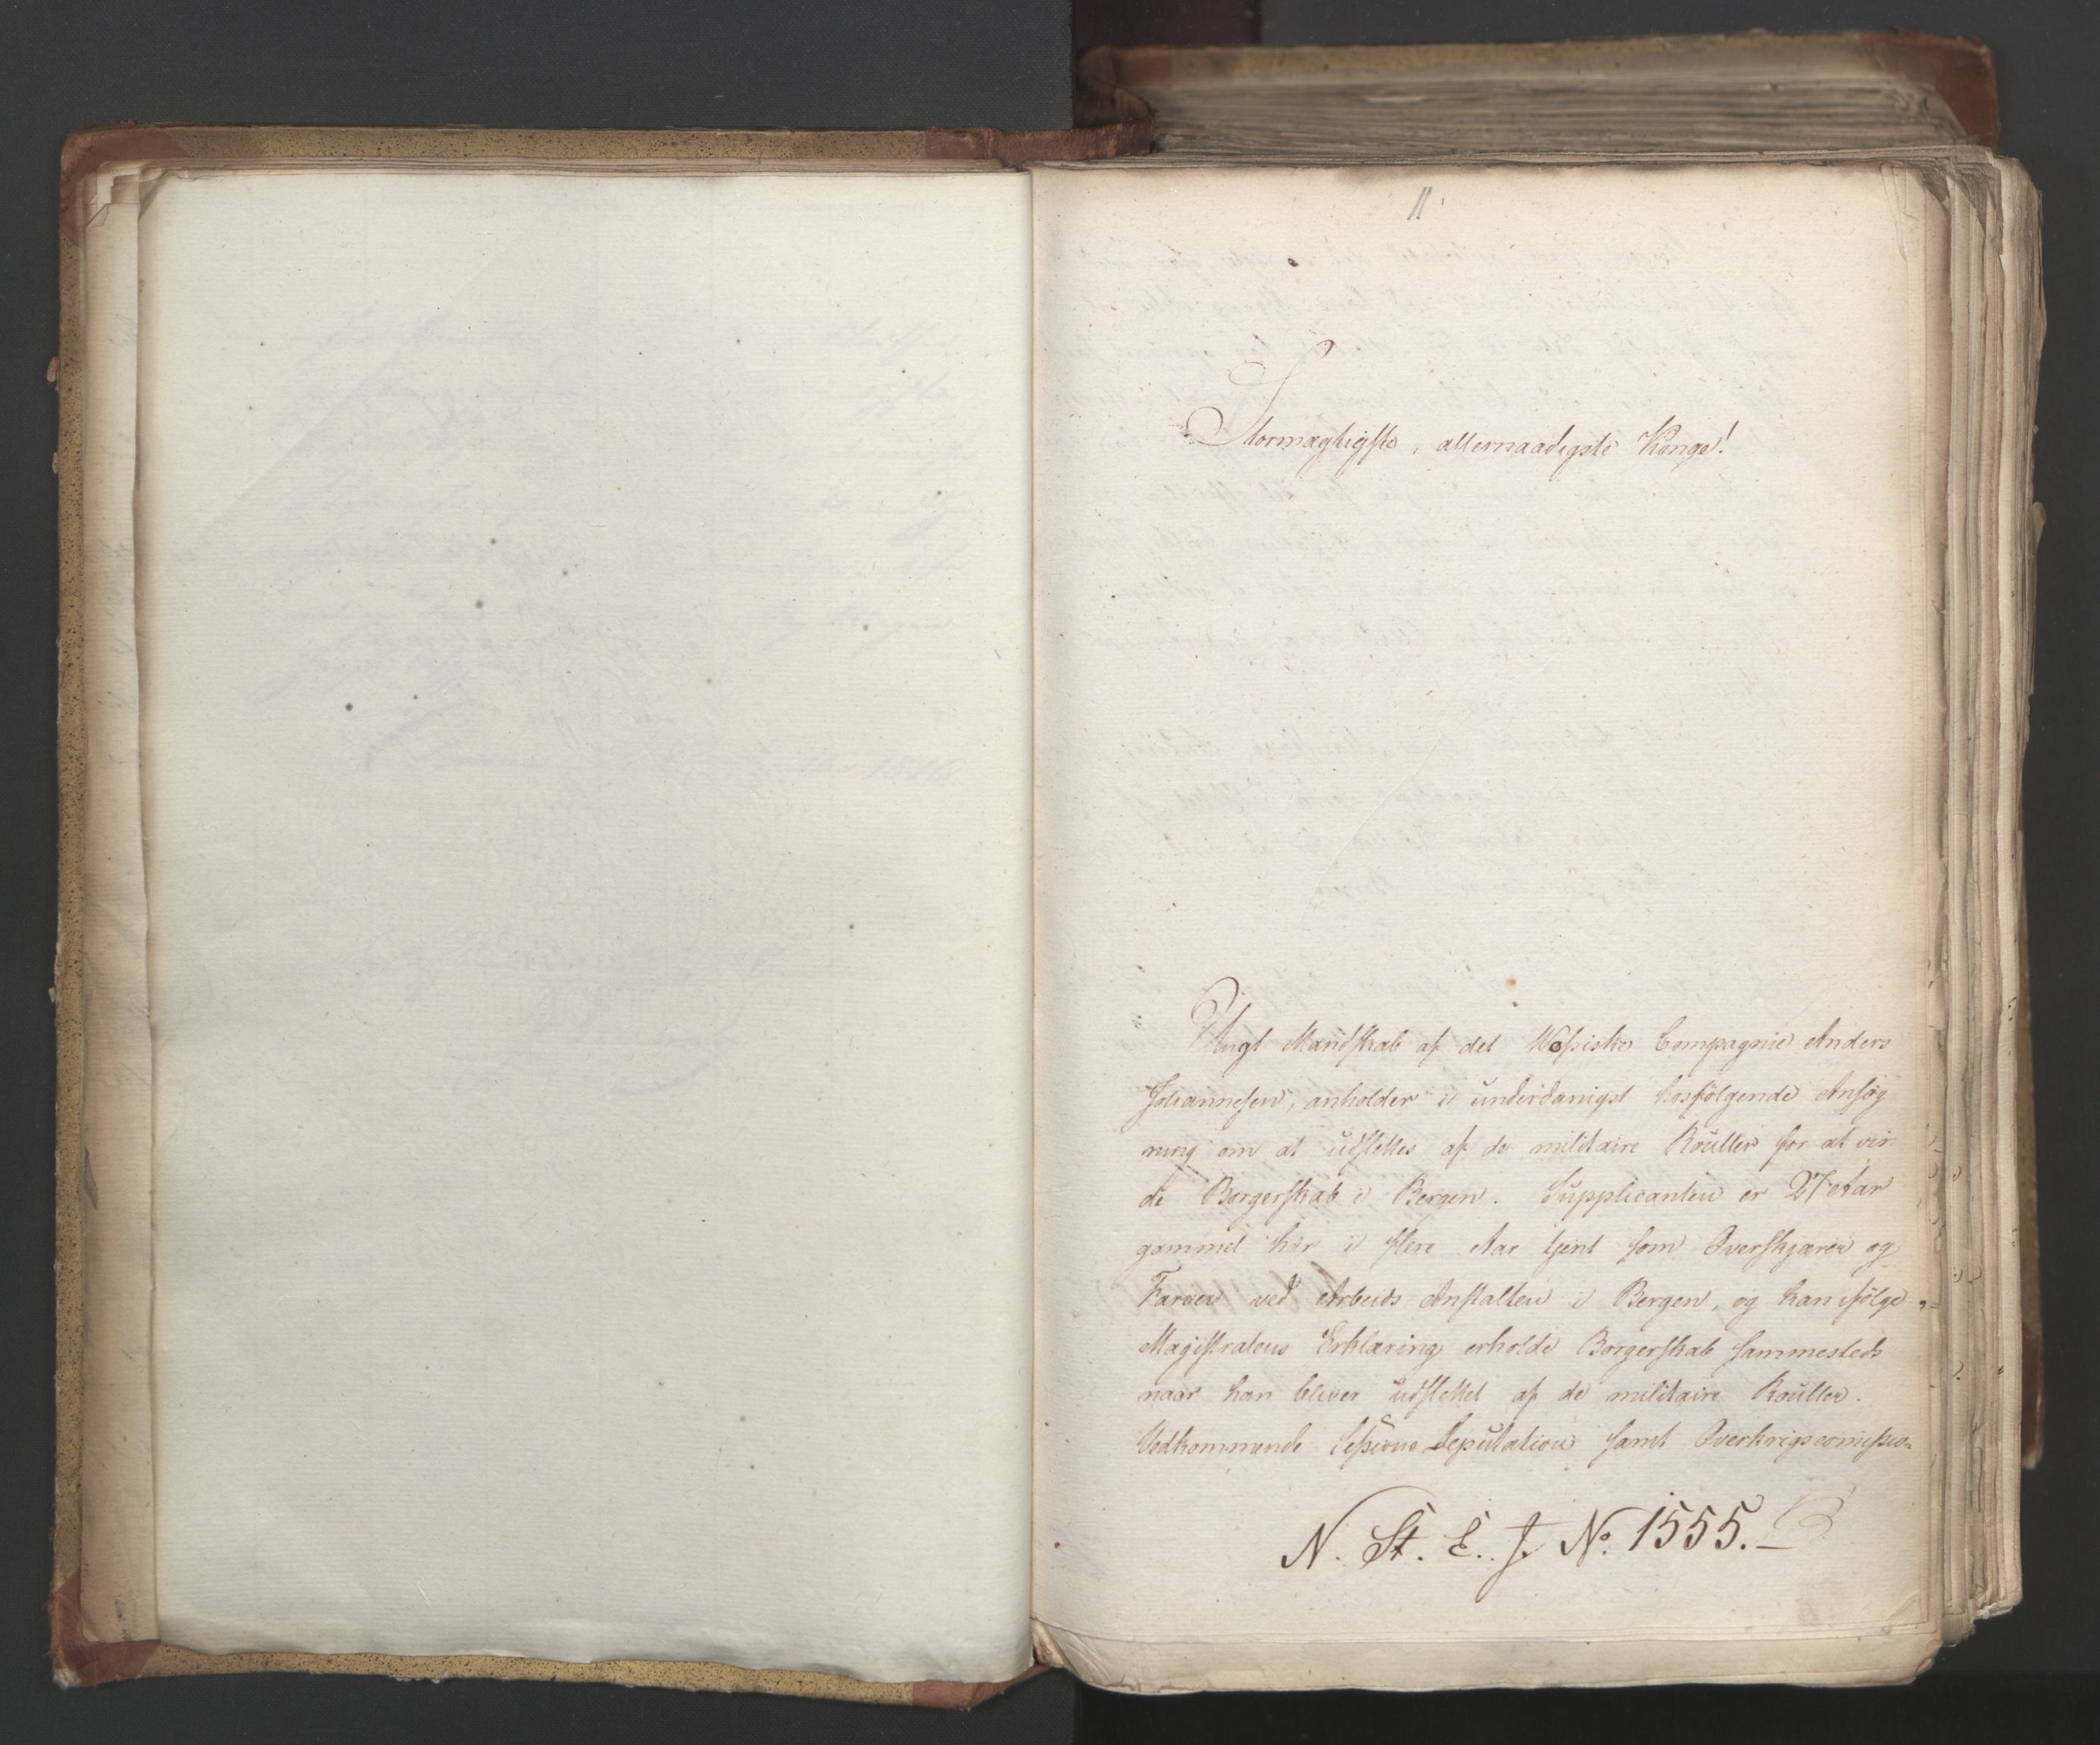 11
Stormægtigste, allernaadigste Konge!
Ungt Mandskab af det Wossiske Compagnie Anders
Johannesen, anholder i underdanigst hosfølgende Ansøg
ning om at udslettes af de militaire Rouller for at vin
de Borgerskab i Bergen. Supplicanten er 27 Aar
gammel har i flere Aar tjent som Overskjærer og
Farver ved Arbeids Anstalten i Bergen, og kan ifølge
Magistratens Erklæring erholde Borgerskab sammesteds
naar han bliver udslettet af de militaire Rouller.
Vedkommende Sessions Deputation samt Overkrigscomissio-
N. St. E. J. No. 1555.